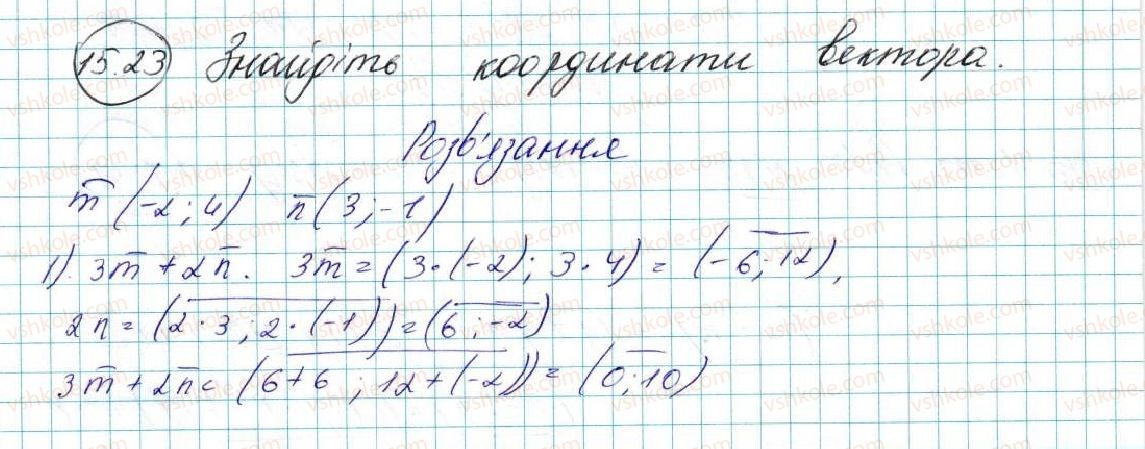 15.23 Знайдіть координати вектора.
Розв'язання
m̅ (-2; 4) n̅ (3; -1)
1). 3m̅ + 2n̅. 3m̅ = (3·(-2); 3·4) = (-6; 12),
2n = (2·3; 2·(-1)) = (6; -2)
3m̅ + 2n̅ = (6+6; 12+(-2)) = (0; 10)